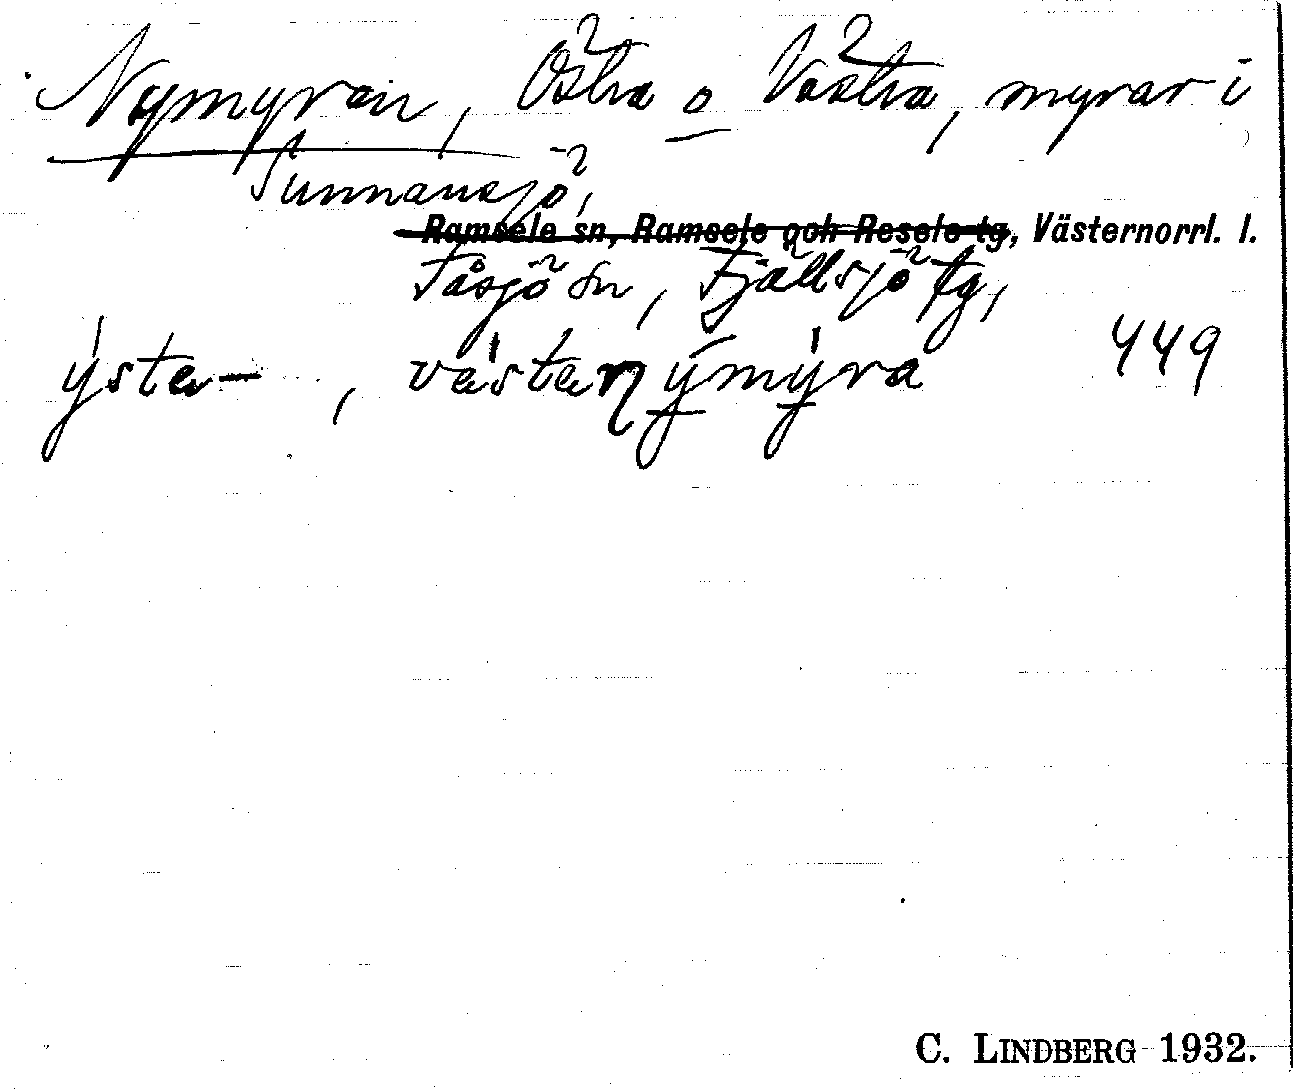 Nymyran, Östra o Västra, myrar i
Sunnansjö,
Ramsele sn, Ramsele och Resele tg, Västernorrl. l.
Tåsjö sn, Fjällsjö tg,
449
ýstɐ- , vástɐɳýmýra
C. LINDBERG 1932.